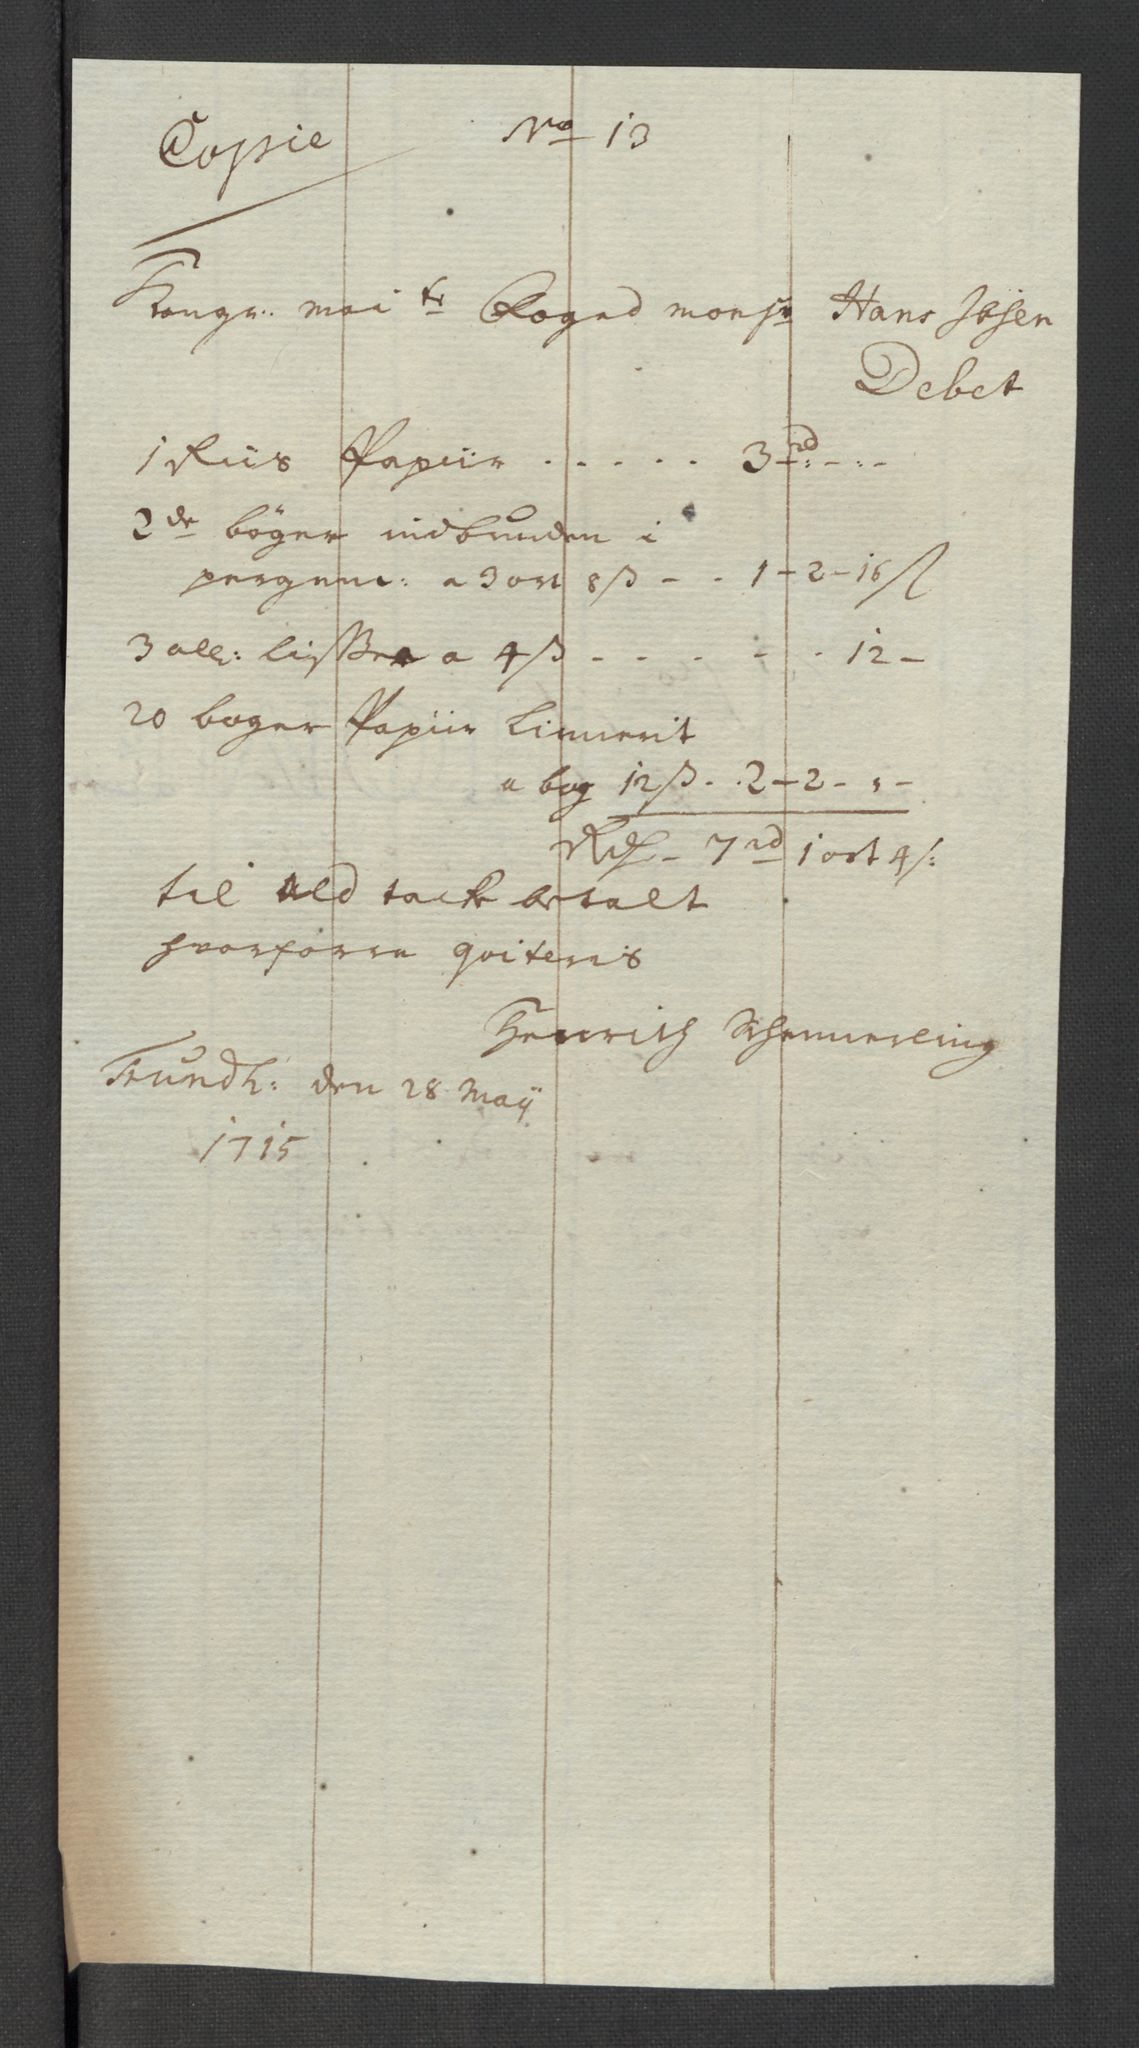 Copie No 13
Kongr. mai ts Foged monsr Hans Ibsen
Debet
1 Riis Papiir . . . . . 3 rd - : - : -
2de böger indbunden i
pergem: a 3 ort 8 ß - - 1 - 2 - 16 ß
3 all: lisser a 4 ß - - - - - 12 -
20 boger Papiir linnerit
a bog 12 ß - - 2 - 2 - " -
Rdr - 7 rd 1 ort 4 ß:
til ald tack betalt
hvorforre qviteris
Henrich Schemerling
Trundh: den 28 Maÿ
1715